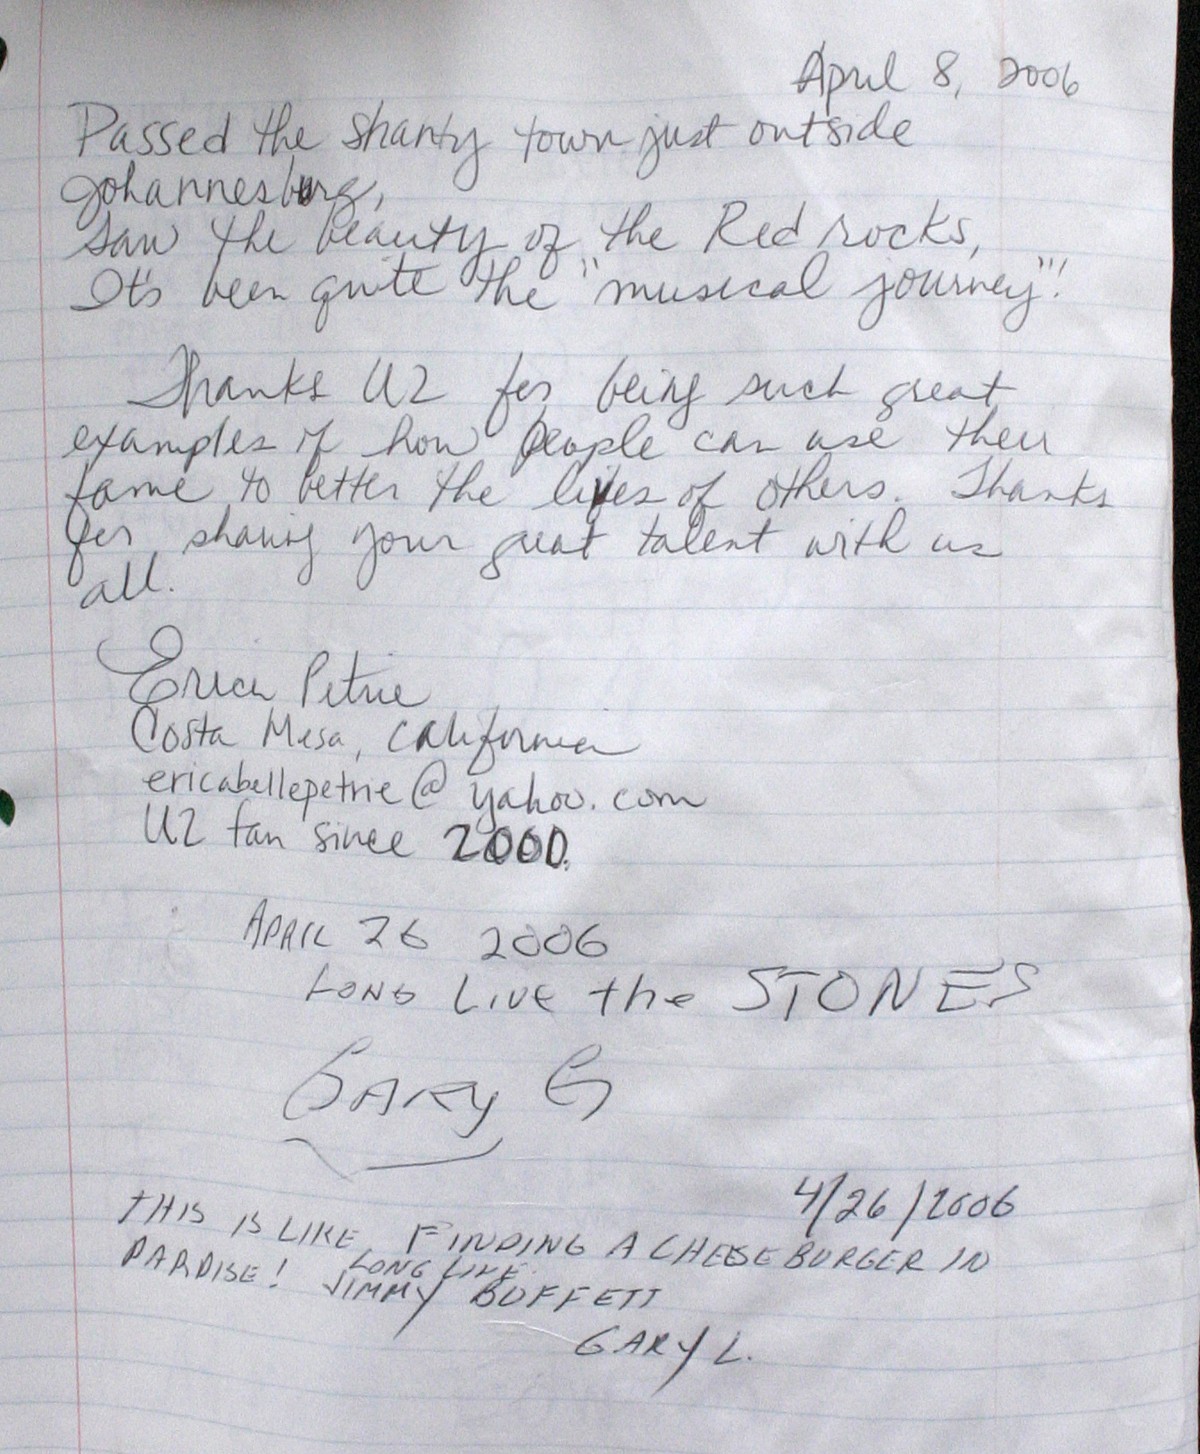 April 8, 2006
Passed the shanty town just outside
Johannesburg,
Saw the beauty of the Red rocks,
It's been quite the "musical journey"!
Thanks U2 for being such great
examples of how people can use their
fame to better the lives of others. Thanks
for sharing your great talent with us
all.
Erica Petrie
Costa Mesa, California
ericabellepetrie@yahoo.com
U2 fan since 2000.
APRIL 26 2006
LONG LIVE the STONES
GARY G
4/26/2006
THIS IS LIKE FINDING A CHEESEBURGER IN
PARDISE! LONG LIVE
JIMMY BUFFETT
GARY L.